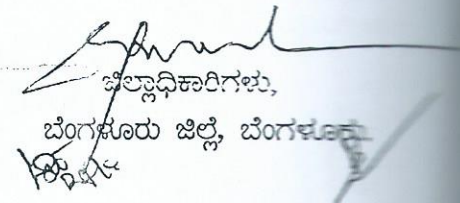 ಜಿಲ್ಲಾಧಿಕಾರಿಗಳು,
ಬೆಂಗಳೂರು ಜಿಲ್ಲೆ, ಬೆಂಗಳೂರು